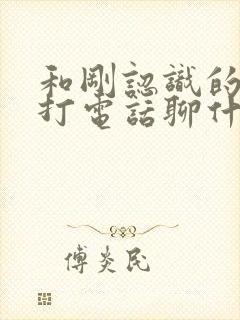 和剛認識的
打電話聊什
傅炎民